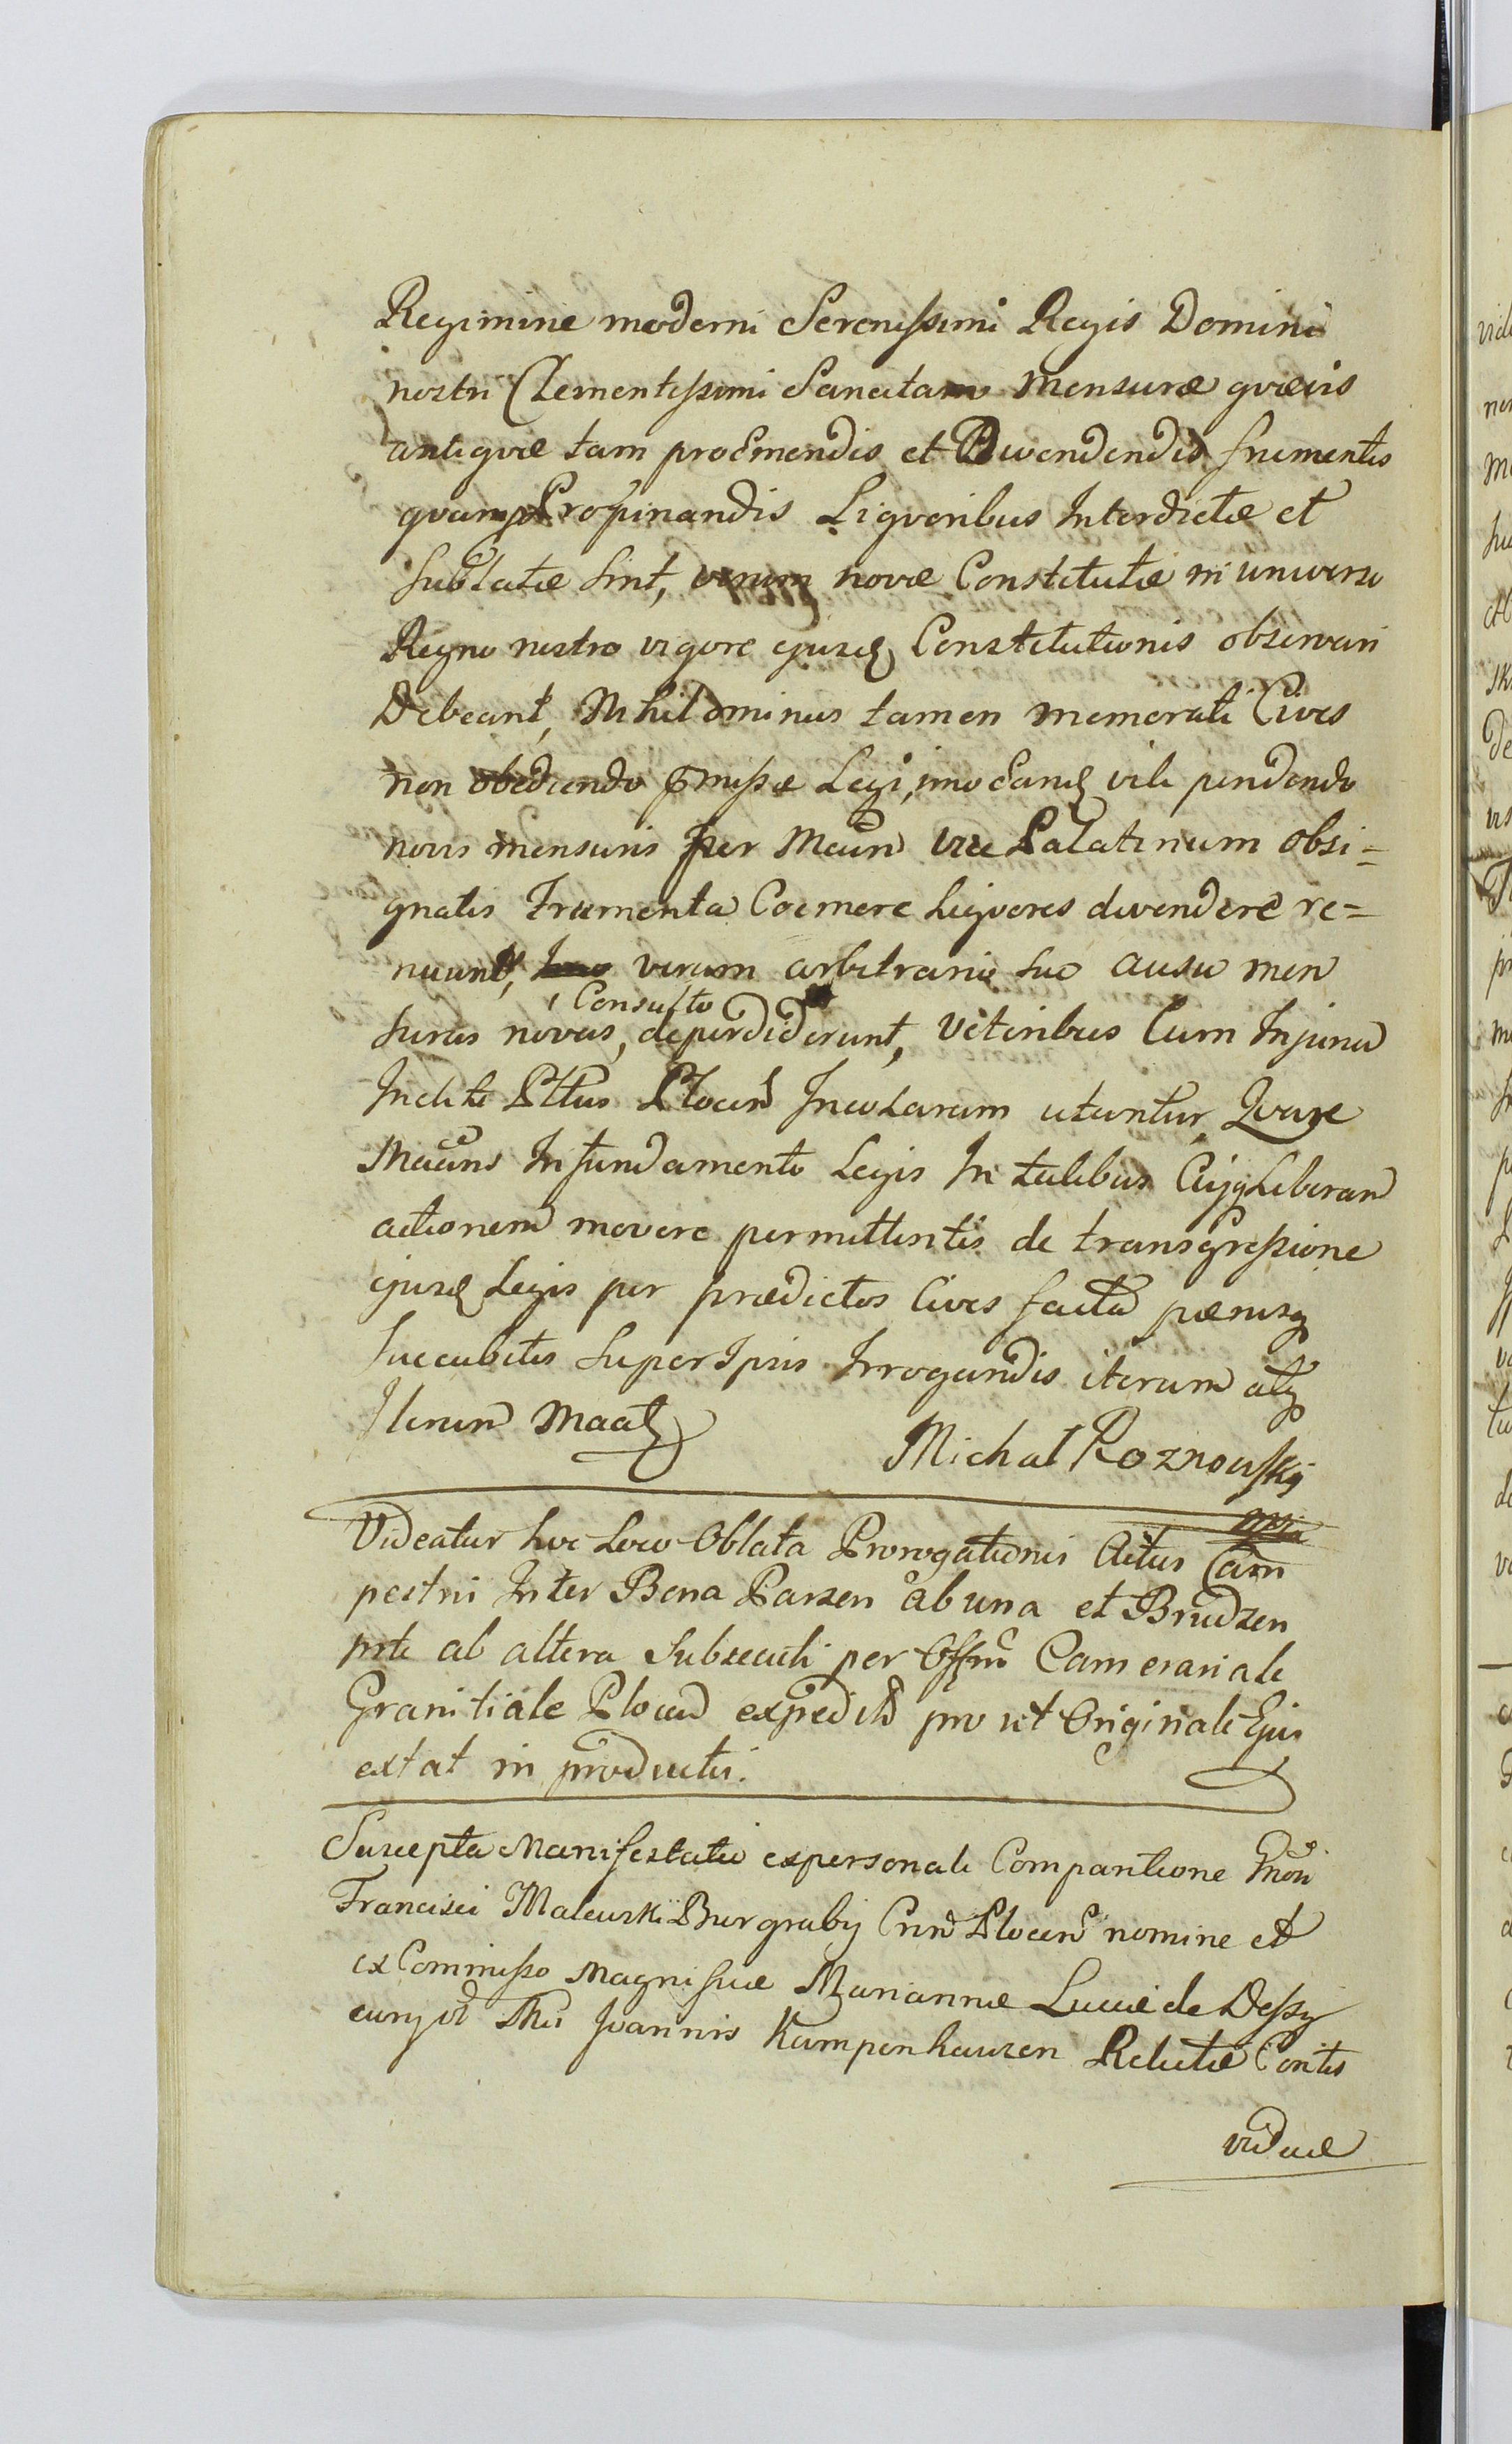 Regimine moderni Serenissimi Regis Domini
nostri Clementissimi Sancitam Mensuræ quævis
antiquæ tam pro Emendis et Divendendis frumentis
quam Propinandis Liquoribus Interdictæ et
Sublatæ sint, verum novæ Constitutæ in universo
Regno nostro vigore ejusq Constitutionis observari
Debeant, Nihilominus tamen memorati Cives
non obediendo pmissæ Legi, imo Eandq vili pendendo
novis mensuris per Mcum Vice Palatinum obsi=
gnatis Frumenta Coemere Liquores divendere re=
nuunt, verum arbitrario suo ausu men
Consulto
suras novas, deperdiderunt, Veteribus Cum Injuria
Incliti Plttus Plocen Incolarum utuntur, Quare
Mcuns In fundamento Legis In talibus Cuiq Liberam
actionem movere permittentis de transgressione
ejusq Legis per prædictos Cives facta pænisq
succubitis super Ipsis Irrogandis iterum atq
Iterum Maatq
Michał Roznowski
mpa
Videatur hoc Loco Oblata Prorogationis Actus Cam
pestri Inter Bona Parzen ab una et Brudzen
prte ab altera Subsecuti per Offm Cameriale
Granitiale Plocen expedit pro ut Originale Ejus
extat in productis.
Suscepta Manifestatio ex personali Comparitione Gnosi
Francisci Malewski Burgrabij Crn Plocen nomine et
ex Commisso Magnificæ Mariannæ Luciæ de Dessy
Joannis Kampenhauzen Relictæ Contis
viduæ